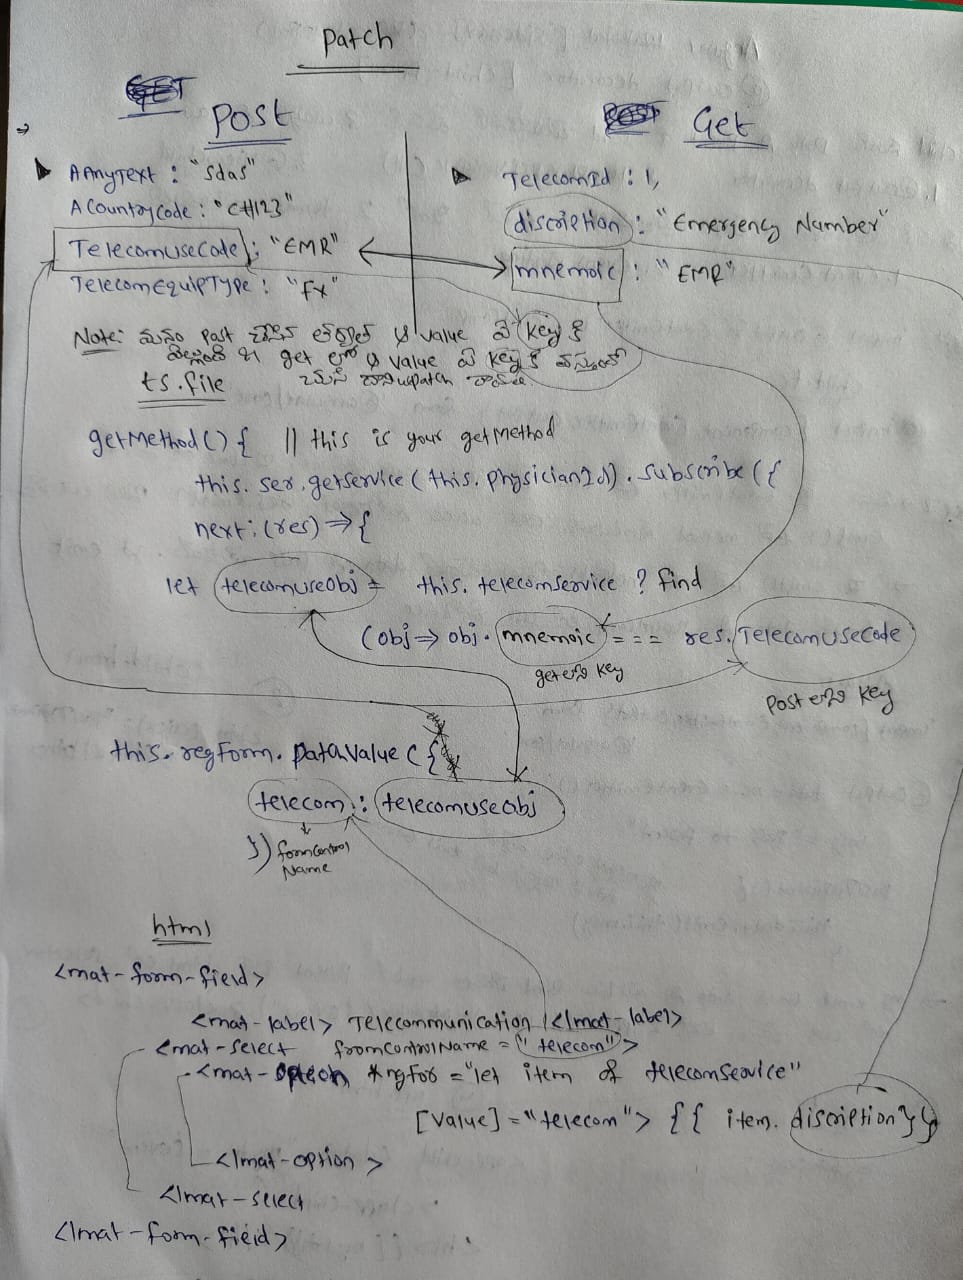 Patch
Post
Get
AAnyText : "sdas"
ACountryCode : "CH123"
TelecomuseCode : "EMR"
TelecomEquipType : "Fx"
TelecomId : 1,
discription : "Emergency Number"
mnemoic : "EMR"
Note: మనం Post చేసిన తర్వాత ఆ value ఏ key కి
get లో ఆ value ఏ key కి వస్తుందో
patch
ts.file
getMethod() { // this is your getMethod
this.ser.getservice(this.physicianId).subscribe({
next:(res)=>{
let telecomuseobj = this.telecomservice ? find
(obj=> obj.mnemoic === res.TelecomuseCode
get లోని key
Post లోని key
this.regForm.patchvalue({
telecom : telecomuseobj
}) formControl
Name
html
<mat-form-field>
<mat-label> Telecommunication </mat-label>
<mat-select fromControlName = "telecom">
<mat-option *ngFor = "let item of telecomService"
[value] = "telecom"> {{ item.discription}}
</mat-option>
</mat-select
</mat-form-field>